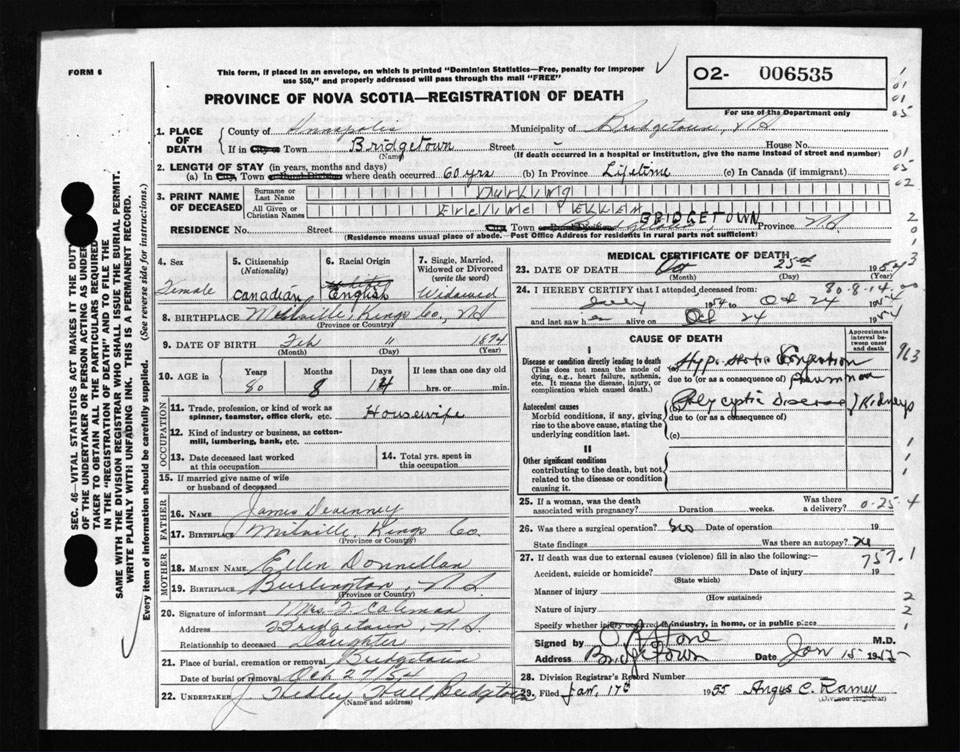 FORM 6
This form, if placed in an envelope, on which is printed "Dominion Statistics—Free, penalty for improper
use $50," and properly addressed will pass through the mail "FREE"
O2- 006535
PROVINCE OF NOVA SCOTIA—REGISTRATION OF DEATH
For use of the Department only
1. PLACE OF DEATH
County of Annapolis Municipality of Bridgetown, N.S.
If in City or Town Bridgetown Street - House No.
(Name) (If death occurred in a hospital or institution, give the name instead of street and number)
2. LENGTH OF STAY (in years, months and days)
(a) In City, Town where death occurred 60 yrs (b) In Province Lifetime (c) In Canada (if immigrant)
3. PRINT NAME OF DECEASED
Surname or Last Name DURLING
All Given or Christian Names ELLEN
RESIDENCE No. Street City, Town BRIDGETOWN Province N.S.
(Residence means usual place of abode. Post Office Address for residents in rural parts not sufficient)
4. Sex Female
5. Citizenship (Nationality) Canadian
6. Racial Origin English
7. Single, Married, Widowed or Divorced (write the word) Widowed
8. BIRTHPLACE Melville, Kings Co., N.S.
(Province or Country)
9. DATE OF BIRTH Feb 11 1874
(Month) (Day) (Year)
10. AGE in Years 80 Months 8 Days 14 If less than one day old hrs. or min.
OCCUPATION
11. Trade, profession, or kind of work as spinner, teamster, office clerk, etc. Housewife
12. Kind of industry or business, as cotton-mill, lumbering, bank, etc.
13. Date deceased last worked at this occupation
14. Total yrs. spent in this occupation
15. If married give name of wife or husband of deceased
FATHER
16. NAME James Devenney
17. BIRTHPLACE Kings Co.
(Province or Country)
MOTHER
18. MAIDEN NAME Ellen Donnellan
19. BIRTHPLACE Burlington, N.S.
(Province or Country)
20. Signature of informant Mrs. F. Coleman
Address Bridgetown, N.S.
Relationship to deceased Daughter
21. Place of burial, cremation or removal Bridgetown
Date of burial or removal Oct 27/54
22. UNDERTAKER J. Hall Bridgetown
(Name and address)
MEDICAL CERTIFICATE OF DEATH
23. DATE OF DEATH Oct 25th 1954
(Month) (Day) (Year)
80-8-14
24. I HEREBY CERTIFY that I attended deceased from:
July 1954 to Oct 24 1954
and last saw her alive on Oct 24 1954
CAUSE OF DEATH
Approximate interval between onset and death
I
Disease or condition directly leading to death
(This does not mean the mode of dying, e.g., heart failure, asthenia, etc. It means the disease, injury, or complication which caused death.)
(a) Hypostatic Congestion
due to (or as a consequence of) Pneumonia
Antecedent causes
Morbid conditions, if any, giving rise to the above cause, stating the underlying condition last.
(b) Polycystic Disease of Kidneys
due to (or as a consequence of)
(c)
II
Other significant conditions
contributing to the death, but not related to the disease or condition causing it.
25. If a woman, was the death associated with pregnancy? Duration weeks. Was there a delivery? 0-25-4
26. Was there a surgical operation? No Date of operation 19
State findings Was there an autopsy? No
27. If death was due to external causes (violence) fill in also the following:— 757.1
Accident, suicide or homicide? Date of injury 19
(State which)
Manner of injury
(How sustained)
Nature of injury
Specify whether injury occurred in industry, in home, or in public place
Signed by Stone M.D.
Address Bridgetown Date Jan 15 1955
28. Division Registrar's Record Number
29. Filed Jan. 17th 1955 Angus C. Ramey
(Division Registrar)
SEC. 46—VITAL STATISTICS ACT MAKES IT THE DUTY
OF THE UNDERTAKER OR PERSON ACTING AS UNDERTAKER
TO OBTAIN ALL THE PARTICULARS REQUIRED
IN THE "REGISTRATION OF DEATH" AND TO FILE THE
SAME WITH THE DIVISION REGISTRAR WHO SHALL ISSUE THE BURIAL PERMIT.
WRITE PLAINLY WITH UNFADING INK. THIS IS A PERMANENT RECORD.
Every item of information should be carefully supplied. (See reverse side for instructions.)